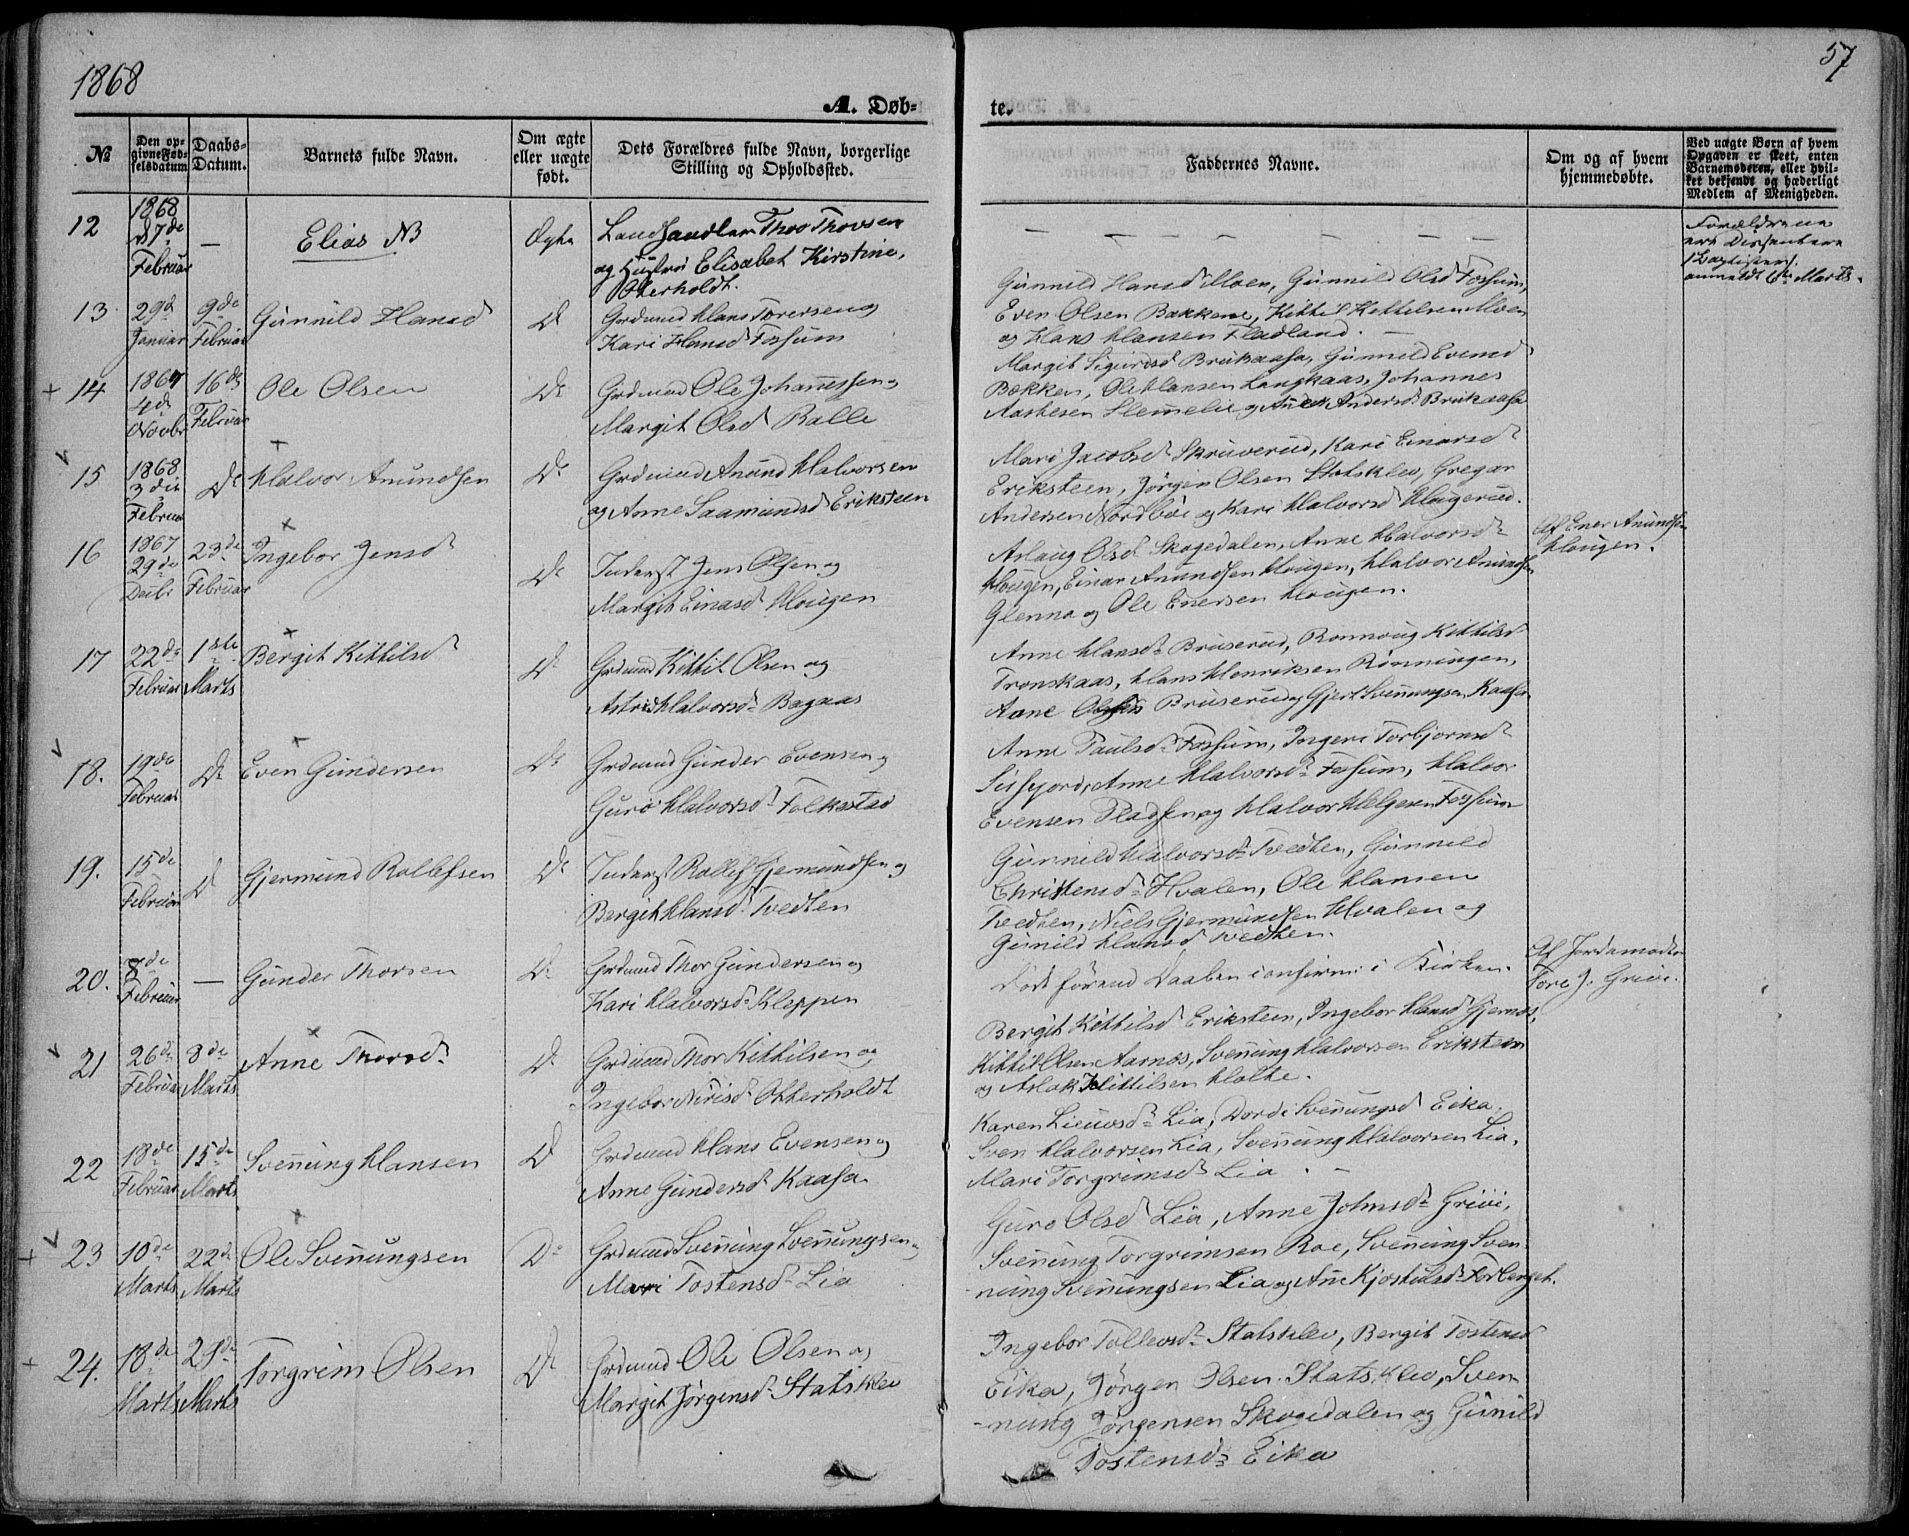 1868
57
A. Døb-
te.
№
Den op-
givne Fød-
selsdatum
Daabs-
Datum.
Barnets fulde Navn.
Om ægte
eller uægte
født.
Dets Forældres fulde Navn, borgerlige
Stilling og Opholdssted.
Faddernes Navne.
Om og af hvem
hjemmedøbte.
Ved uægte Børn af hvem
Opgaven er skeet, enten
Barnemoderen, eller hvil-
ket bekjendt og hæderligt
Medlem af Menigheden.
12
1868
Februar
—
Elias NB
Ægte
Landhandler Thor Thorsen
og Hustru Elisabet Kirstine,
Oterholdt.
— — — — — — — —
Forældrene
ere Dissentere
anmeldt 6te Marts.
13.
29de
Januar
9de
Februar
Gunnild Hansd
Do
Grdmand Hans Torersen og
Kari Hansd Fossum
Gunnild Hansd Moen, Gunnild Olsd Fossum,
Even Olsen Bakkene, Kittil Kittelsen Moen
og Hans Hansen Fladland. —
14
1867
4de
Novbr
16de
Februar
Ole Olsen
Do
Grdmand Ole Johannessen og
Margit Olsd Balle
Margit Sigurdsd Brukaasa, Gunnild Evensd
Bækken, Ole Hansen Langkaas, Johannes
Aslesen Slemelie og Anne Andersd Brukaasa
15
1868
3die
Februar
Do
Halvor Anundsen
Do
Grdmand Anund Halvorsen
og Anne Saamundsd Eriksteen
Mari Jacobsd Skruverud, Kari Einarsd
Eriksteen, Jørgen Olsen Statsklev, Gregar
Andersen Nordbøe og Kari Halvorsd Haugerud.
16
1867
29de
Decbr
23de
Februar
Ingebor Jensd
Do
Inderst Jens Olsen og
Margit Einarsd Hougen
Aslaug Olsd Skogedalen, Anne Halvorsd
Hougen, Einar Anundsen Hougen, Halvor Anundsen
Glenna og Ole Enersen Hougen.
Af Ener Anundsen
Hougen.
17
22de
Februar
1ste
Marts
Bergit Kittilsd
Do
Grdmand Kittil Olsen og
Astrid Halvorsd Bagaas
Anne Hansd Bruserud, Ronnoug Kittilsd
Tronskaas, Hans Henriksen Rønningen,
Anne Bruserud og Gjert Svenungsen Kaasa
18.
19de
Februar
Do
Even Gundersen
Do
Grdmand Gunder Evensen og
Guro Halvorsd Folkestad
Anne Paulsd Fossum, Ingeri Torbjornsd
Anne Halvorsd Fossum, Halvor
Evensen Pladsen og Halvor Helgesen Fossum
19.
15de
Februar
Do
Gjermund Rollefsen
Do
Inderst Rollef Gjermundsen og
Bergit Hansd Tvedten
Gunnild Halvorsd Tvedten, Gunnild
Christensd Hvalen, Ole Hansen
Tvedten, Niels Gjermundsen Hvalen og
Gunild Hansd Tvedten.
20.
8de
Februar
—
Gunder Thorsen
Do
Grdmand Thor Gundersen og
Kari Halvorsd Kleppen
Døde førend Daaben confirm: i Kirken.
Af Jordemoder
Tore J. Grivi.
21
26de
Februar
8de
Marts
Anne Thorsd
Do
Grdmand Thor Kittilsen og
Ingebor Nirisd Otterholdt
Bergit Kittilsd Eriksteen, Ingebor Hansd Gjernes,
Kittil Olsen Aarnes, Svenung Halvorsen Eriksteen
og Aslak Kittilsen Holte.
22
18de
Februar
15de
Marts
Svenung Hansen
Do
Grdmand Hans Evensen og
Anne Gundersd Kaasa
Karen Lieuvsd Lia, Dordi Svenungsd Eika
Sven Halvorsen Lia, Svenung Halvorsen Lia,
Mari Torgrimsd Lia. —
23
10de
Marts
22de
Marts
Ole Svenungsen
Do
Grdmand Svenung Svenungsen og
Mari Tostensd Lia
Guro Olsd Lia, Anne Johnsd Grivi,
Svenung Torgrimsen Roe, Svenung Sven-
nung Svenungsen Lia og Ane Kjostulsd Forberget.
24.
18de
Marts
29de
Marts
Torgrim Olsen
Do
Grdmand Ole Olsen og
Margit Jørgensd Statsklev
Ingebor Tollevsd Statsklev, Bergit Tostensd
Eika, Jørgen Olsen Statsklev, Sven-
nung Jørgensen Skogedalen og Gunild
Tostensd Eika